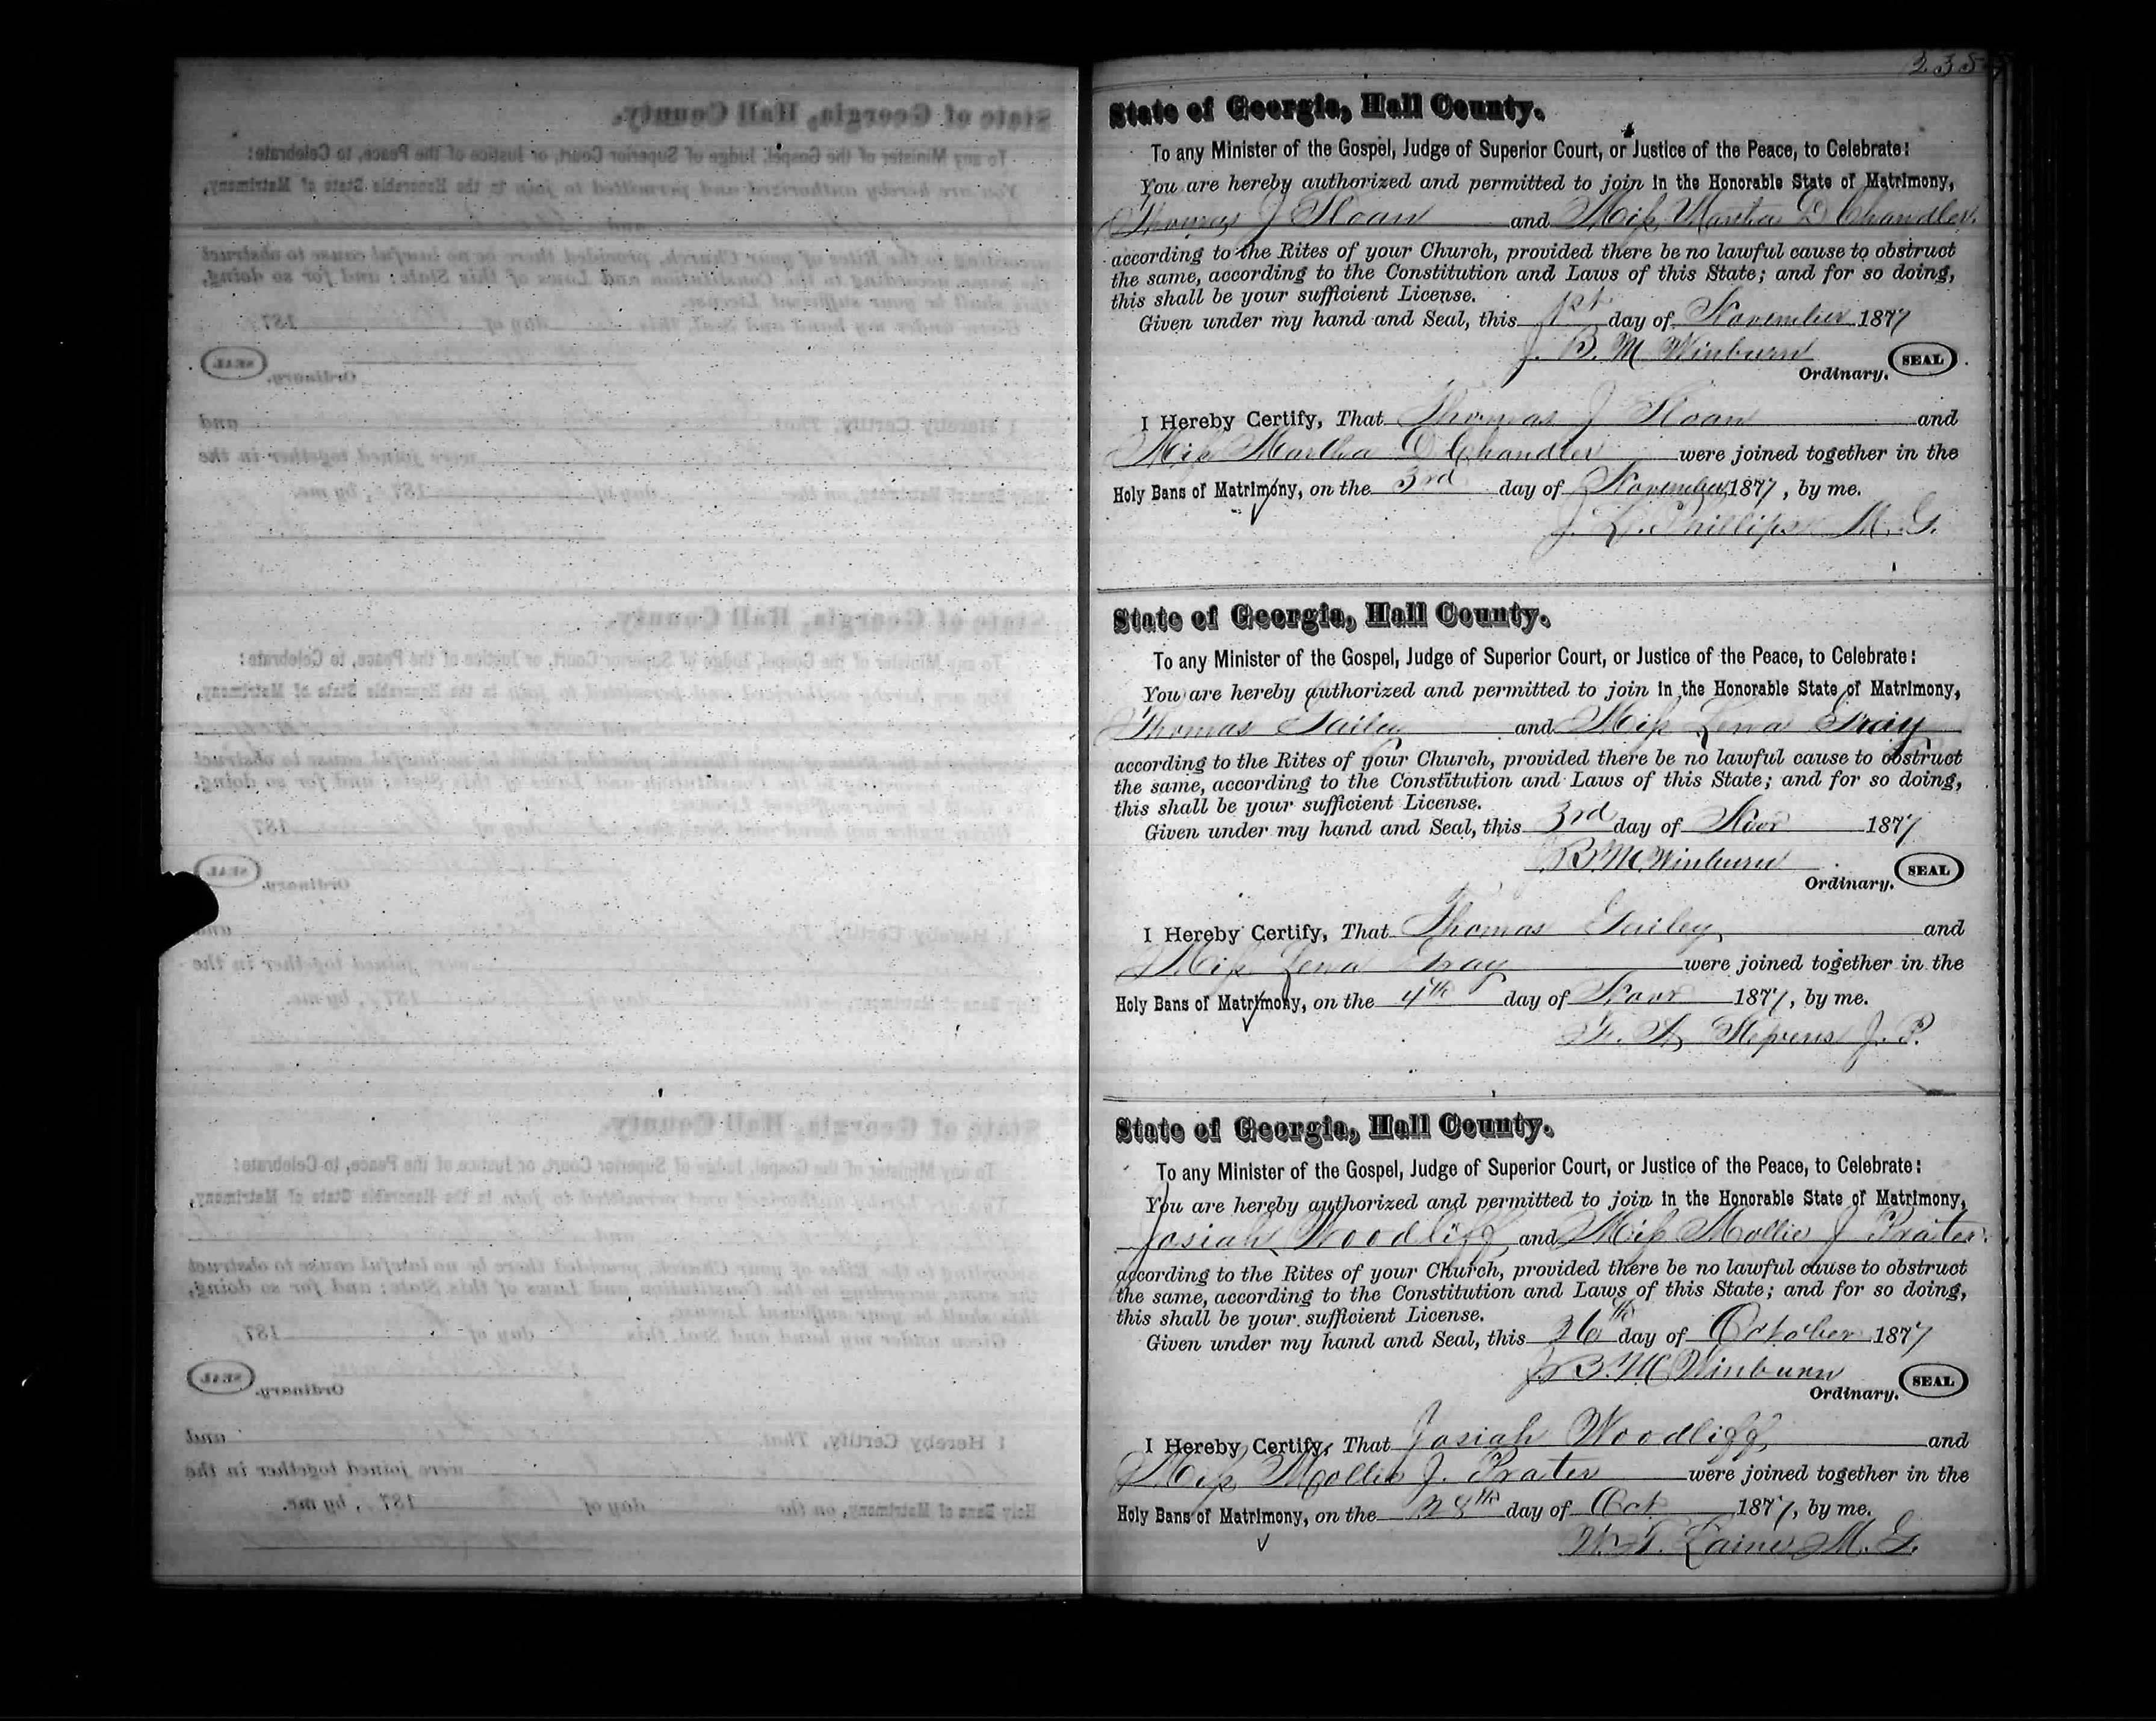 238
State of Georgia, Hall County.
To any Minister of the Gospel, Judge of Superior Court, or Justice of the Peace, to Celebrate:
You are hereby authorized and permitted to join in the Honorable State of Matrimony,
Thomas J Sloan and Miss Martha D Chandler.
according to the Rites of your Church, provided there be no lawful cause to obstruct
the same, according to the Constitution and Laws of this State; and for so doing,
this shall be your sufficient License.
Given under my hand and Seal, this 1st day of November 1877
J. B. M. Winburn SEAL
Ordinary.
I Hereby Certify, That Thomas J Sloan and
Miss Martha D Chandler were joined together in the
Holy Bans of Matrimony, on the 3rd day of November 1877, by me.
J. L. Phillips M. G.
State of Georgia, Hall County.
To any Minister of the Gospel, Judge of Superior Court, or Justice of the Peace, to Celebrate:
You are hereby authorized and permitted to join in the Honorable State of Matrimony,
Thomas Gailey and Miss Lena Gray
according to the Rites of your Church, provided there be no lawful cause to obstruct
the same, according to the Constitution and Laws of this State; and for so doing,
this shall be your sufficient License.
Given under my hand and Seal, this 3rd day of Novr 1877
J. B. M. Winburn SEAL
Ordinary.
I Hereby Certify, That Thomas Gailey, and
Miss Lena Gray were joined together in the
Holy Bans of Matrimony, on the 4th day of Novr 1877, by me.
Stephens J. P.
State of Georgia, Hall County.
To any Minister of the Gospel, Judge of Superior Court, or Justice of the Peace, to Celebrate:
You are hereby authorized and permitted to join in the Honorable State of Matrimony,
Josiah Woodliff and Miss Mollie J Prater.
according to the Rites of your Church, provided there be no lawful cause to obstruct
the same, according to the Constitution and Laws of this State; and for so doing,
this shall be your sufficient License.
Given under my hand and Seal, this 26th day of October 1877
J. B. M. Winburn SEAL
Ordinary.
I Hereby Certify, That Josiah Woodliff and
Miss Mollie J. Prater were joined together in the
Holy Bans of Matrimony, on the 28th day of Oct 1877, by me.
M. G.